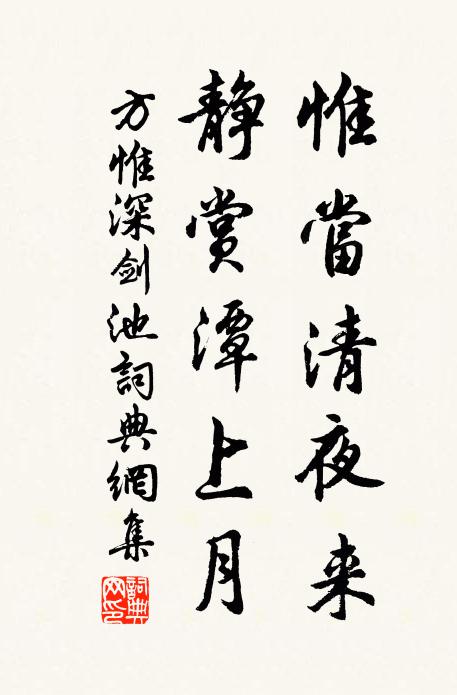 惟當清夜来
静賞潭上月
方惟深剑池詞典網集
詞典網印